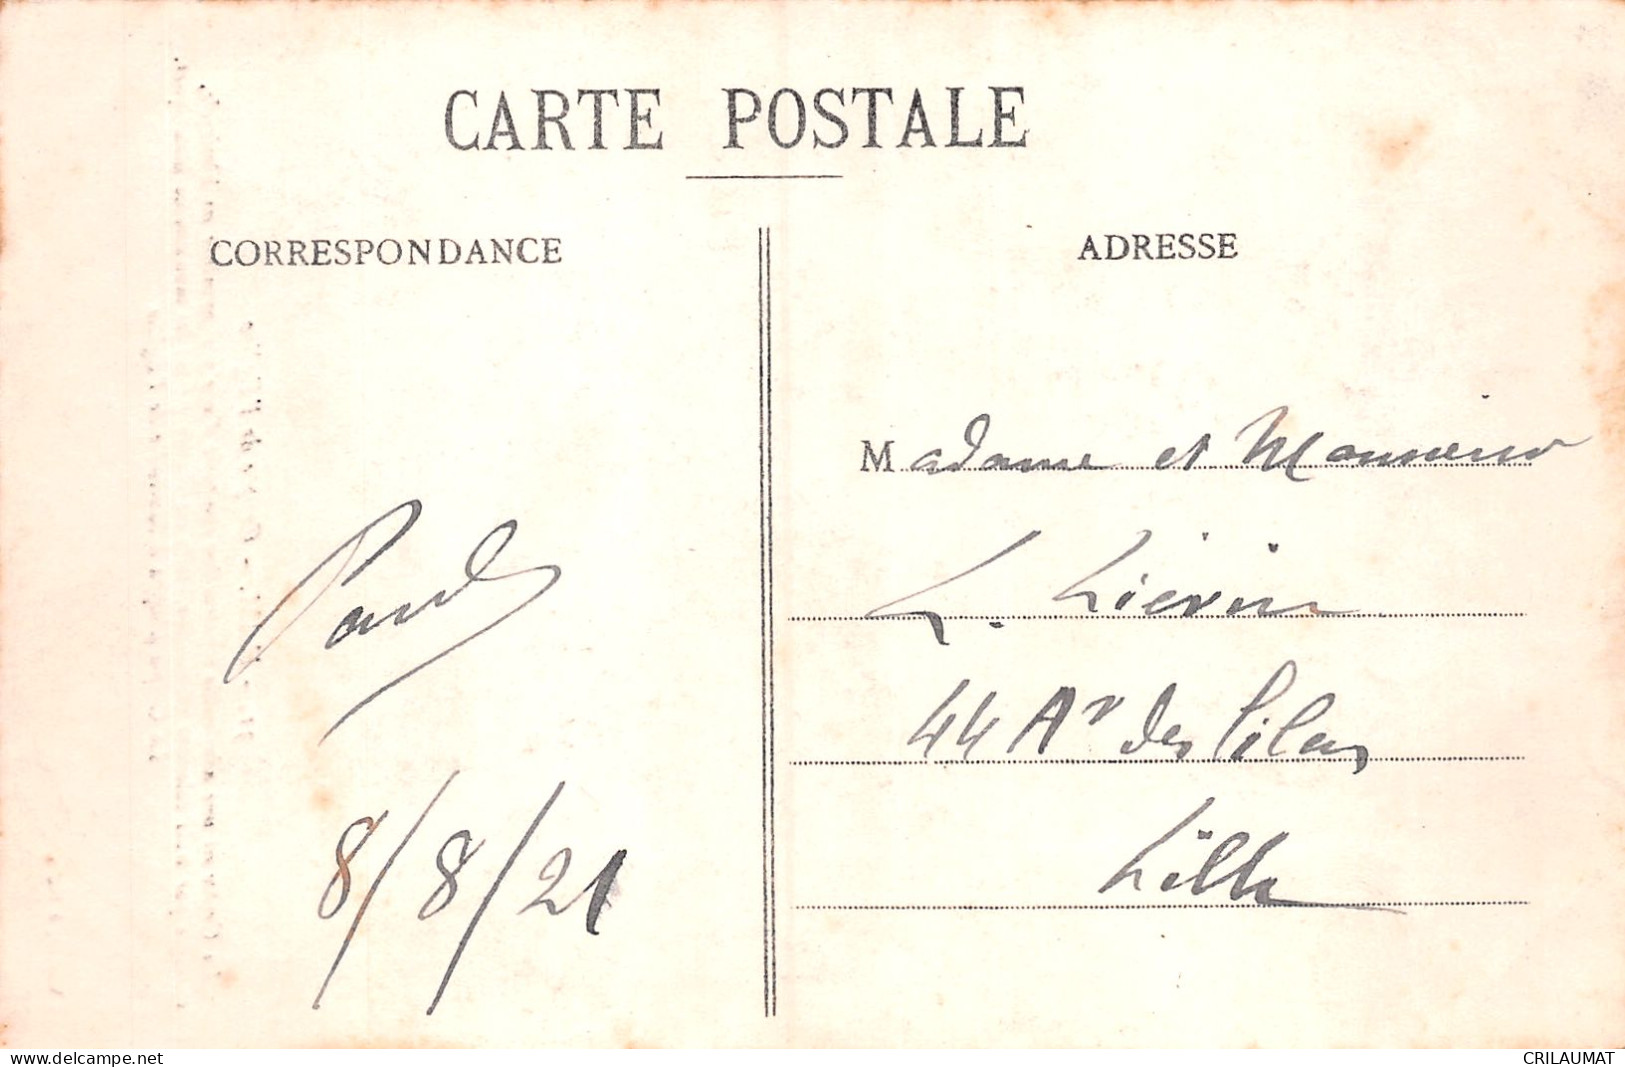 CARTE POSTALE
CORRESPONDANCE
ADRESSE
Madame et Monsieur
L. Liévin
44 Av des Lilas
Lille
Paul
8/8/21
www.delcampe.net
CRILAUMAT